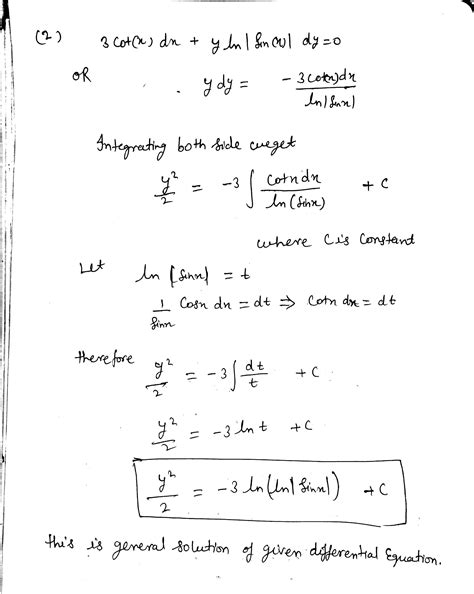 (2) 3 cot(x) dx + y ln|sin(x)| dy = 0
OR y dy = -3 cot(x) dx / ln|sinx|
Integrating both side we get
y²/2 = -3 ∫ cotx dx / ln(sinx) + C
where C is constant
Let ln|sinx| = t
1/sinx cosx dx = dt ⇒ cotx dx = dt
therefore y²/2 = -3 ∫ dt/t + C
y²/2 = -3 ln t + C
y²/2 = -3 ln(ln|sinx|) + C
this is general solution of given differential Equation.